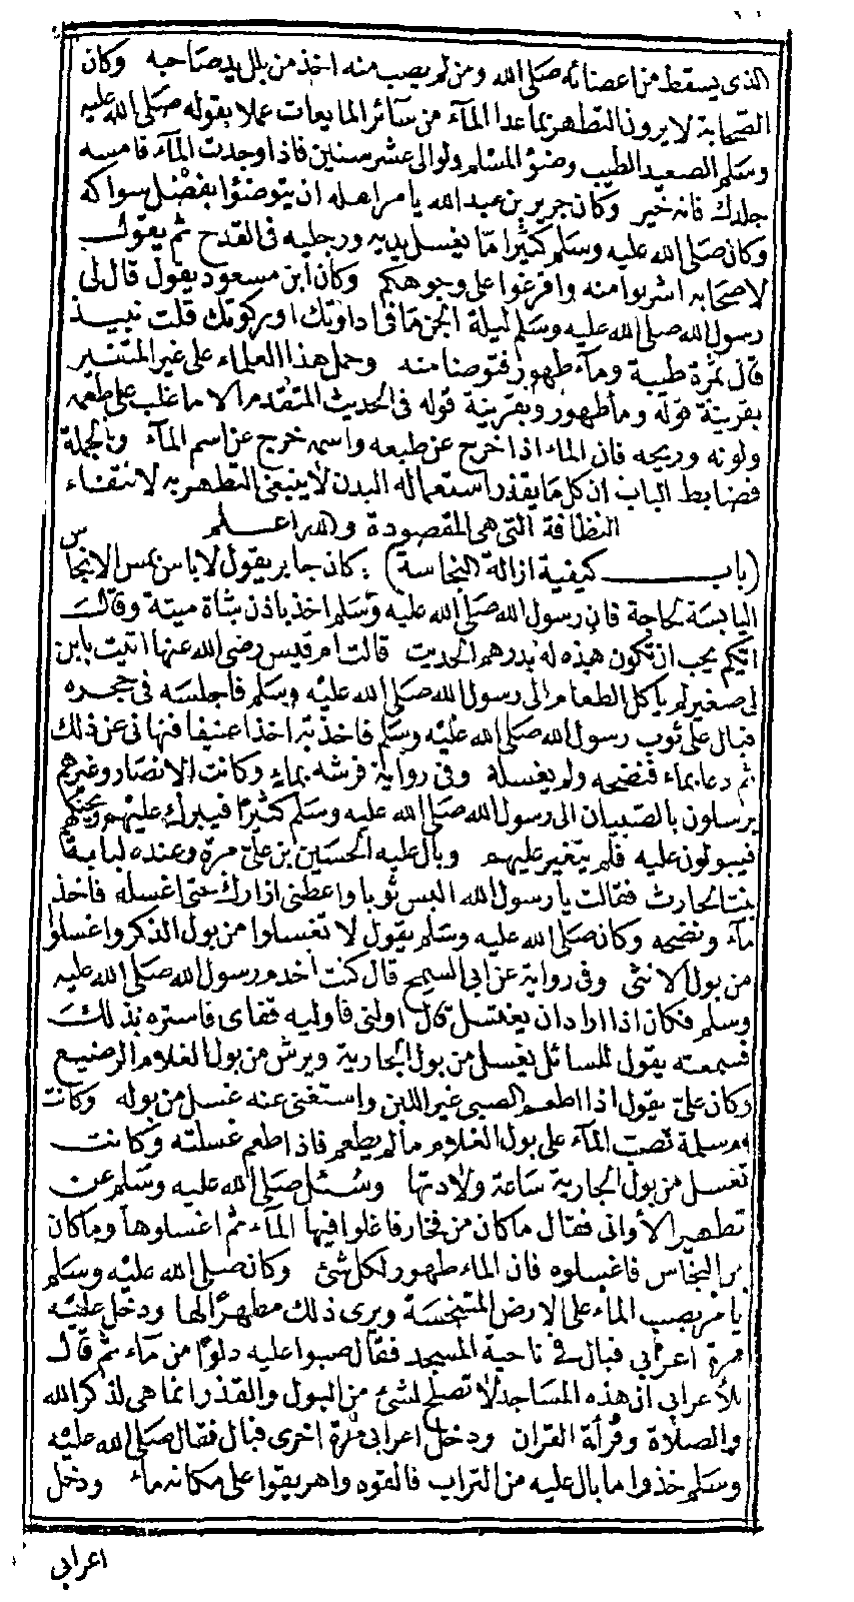 الذى يسقط من اعضائه صلى الله ومن لم يصب منه اخذ من بلل يد صاحبه وكان
الصحابة لا يرون التطهر بما عدا المآء من سآئر المايعات عملا بقوله صلى الله عليه
وسلم الصعيد الطيب وضؤ المسلم ولو الى عشر سنين فاذا وجدت المآء فامسه
جلدك فانه خير وكان جرير بن عبد الله يامر اهله ان يتوضؤا بفضل سواكه
وكان صلى الله عليه وسلم كثيرا مّا يغسل يديه ورجليه فى القدح ثم يقول
لاصحابه اشربوا منه وافرغوا على وجوهكم وكان ابن مسعود يقول قال لى
رسول الله صلى الله عليه وسلم ليلة الجن ما فى اداوتك او ركوتك قلت نبيذ
قال تمرة طيبة ومآء طهور فتوضا منه وحمل هذا العلماء على غير المتنير
بقرينة قوله ومآ طهور وبقرينة قوله فى الحديث المتقدم الا ما غلب على طعمه
ولونه وريحه فان الماء اذا خرج عن طبعه واسمه خرج عن اسم المآء وبالجملة
فضابط الباب ان كل ما يقذر استعماله البدن لا ينبغى التطهر به لانتفاء
النظافة التى هى المقصودة والله اعلم
(باب كيفية ازالة النجاسة) كان جابر يقول لا باس بمس الانجاس
اليابسة لحاجة فان رسول الله صلى الله عليه وسلم اخذ باذن شاة ميتة وقال
ايكم يحب ان تكون هذه له بدرهم الحديث قالت ام قيس رضى الله عنها اتيت بابن
لى صغير لم ياكل الطعام الى رسول الله صلى الله عليه وسلم فاجلسه فى حجره
فبال على ثوب رسول الله صلى الله عليه وسلم فاخذته اخذا عنيفا فنهانى عن ذلك
ثم دعا بماء فنضحه ولم يغسله وفى رواية فرشه بماء وكانت الانصار وغيرهم
يرسلون بالصبيان الى رسول الله صلى الله عليه وسلم كثيرا فيبرك عليهم ويحنكهم
فيبولون عليه فلم يتغير عليهم وبال عليه الحسين بن على مرة وعنده لبابة
بنت الحارث فقالت يا رسول الله البس ثوبا واعطنى ازارك حتى اغسله فاخذ
مآء ونضحه وكان صلى الله عليه وسلم يقول لا تغسلوا من بول الذكر واغسلوا
من بول الانثى وفى رواية عن ابى السمح قال كنت اخدم رسول الله صلى الله عليه
وسلم فكان اذا اراد ان يغتسل قال اولنى فاوليه قفاى فاستره بذلك
فسمعته يقول للسائل يغسل من بول الجارية ويرش من بول الغلام الرضيع
وكان على يقول اذا اطعم الصبى غير اللبن واستغنى عنه غسل من بوله وكانت
ام سلمة تصب المآء على بول الغلام ما لم يطعم فاذا طعم غسلته وكانت
تغسل من بول الجارية ساعة ولادتها وسئل صلى الله عليه وسلم عن
تطهير الأوانى فقال ما كان من فخار فاغلوا فيها المآء ثم اغسلوها وما كان
من النحاس فاغسلوه فان الماء طهور لكل شئ وكان صلى الله عليه وسلم
يامر بصب الماء على الارض المتنجسة ويرى ذلك مطهرا لها ودخل عليه
مرة اعرابى فبال فى ناحية المسجد فقال صبوا عليه دلوا من مآء ثم قال
للأعرابى ان هذه المساجد لا تصلح لشئ من البول والقذر انما هى لذكر الله
والصلاة وقرأة القران ودخل اعرابى مرة اخرى فبال فقال صلى الله عليه
وسلم خذوا ما بال عليه من التراب فالقوه واهريقوا على مكانه ماء ودخل
اعرابى